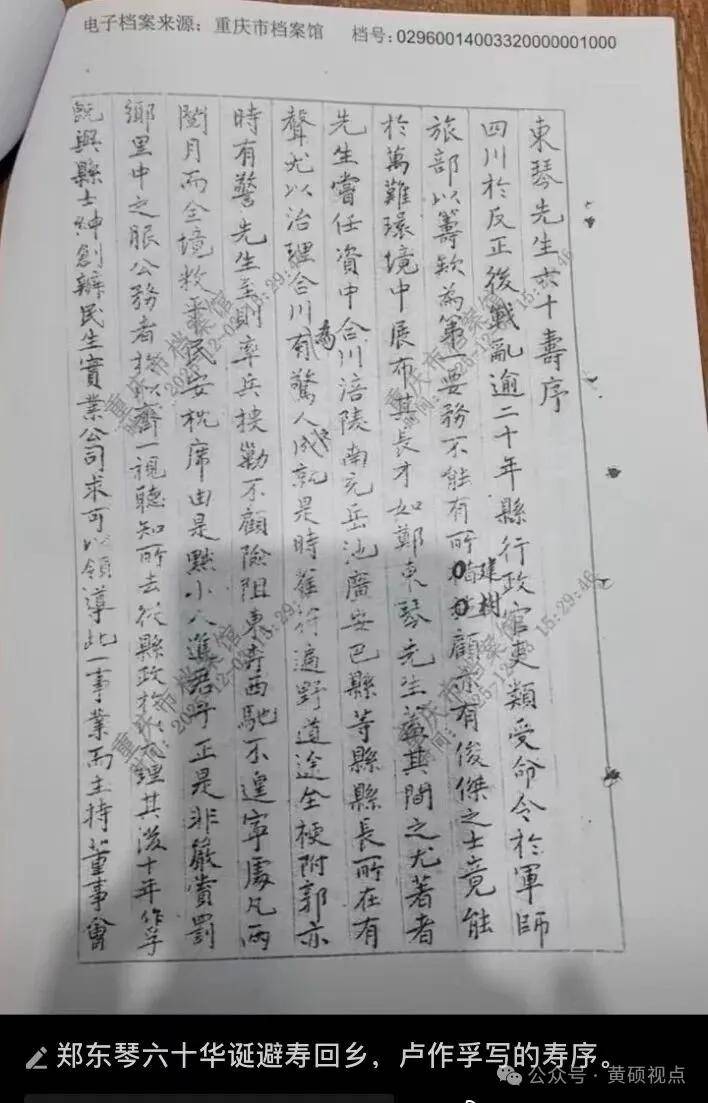 电子档案来源：重庆市档案馆　档号：02960014003320000001000
東琴先生六十壽序
四川於反正後戰亂逾二十年縣行政官吏類受命令於軍師
旅部以籌款為第一要務不能有所建樹顧亦有俊傑之士竟能
於萬難環境中展布其長才如鄭東琴先生蓋其間之尤著者
先生嘗任資中合川涪陵南充岳池廣安巴縣等縣縣長所在有
聲尤以治理合川為有驚人成就是時萑苻遍野道途全梗附郭亦
時有警先生至則率兵挾勦不顧險阻東奔西馳不遑寧處凡兩
閱月而全境救平民安枕席由是黜小人進君子正是非嚴賞罰
鄉里中之服公務者於以齊一視聽知所去從縣政於以理其後十年作孚
既與縣士紳創辦民生實業公司求可以領導此一事業而主持董事會
重庆市档案馆
时间：2025-12-0 15:29:46
郑东琴六十华诞避寿回乡，卢作孚写的寿序。
公众号·黄硕视点